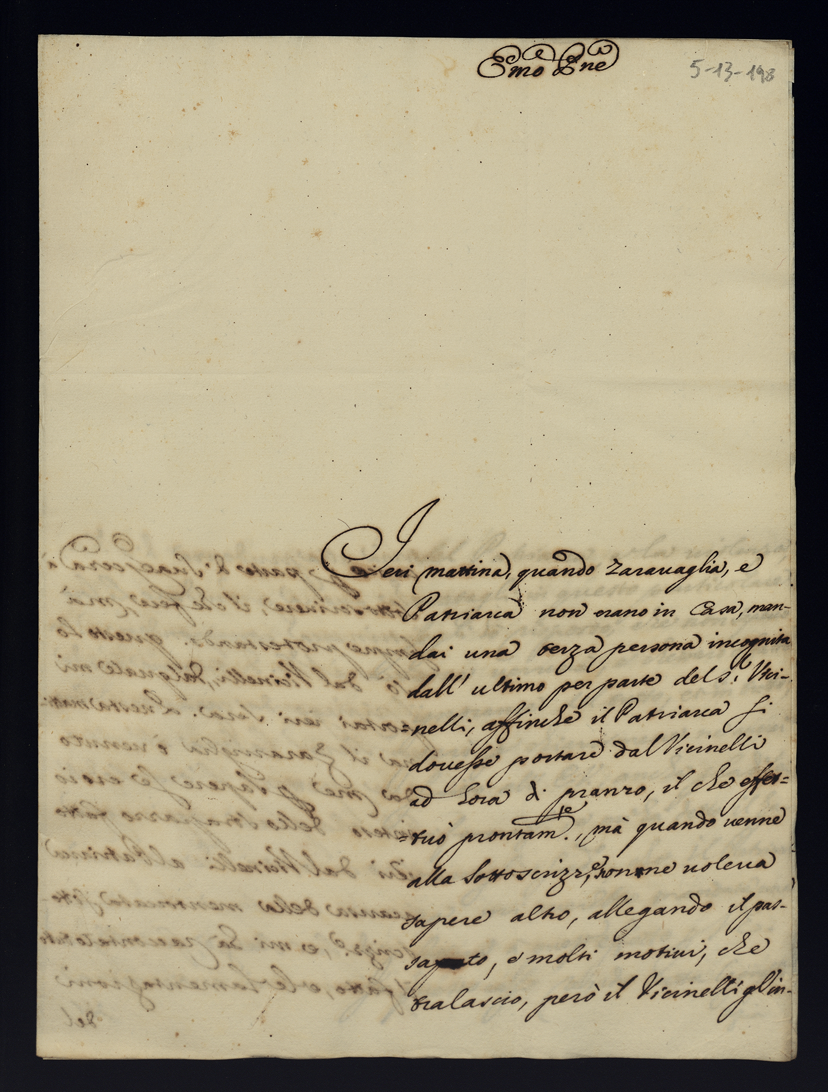 Emo͞ E͞ne
5-13-198
Ieri mattina, quando Zaravaglia, e
Patriarca non erano in Casa, man-
dai una terza persona incognita
dall' ultimo per parte del S.r Vici-
nelli, affinche il Patriarca si
dovesse portare dal Vicinelli
ad hora di pranzo, il che effet-
=tuò prontam.te, mà quando venne
alla Sottoscrizz.e, non ne voleva
sapere altro, allegando il pas-
sato, e molti motivi, che
tralascio, però il Vicinelli gl'in-